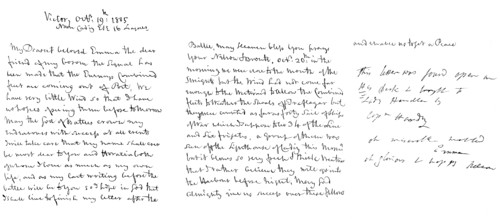 Victory Octr. 19th 1805
Noon Cadiz ESE 16 Leagues
My Dearest beloved Emma the dear
friend of my bosom the signal has
been made that the Enemys combined
fleet are coming out of Port. We
have very little Wind so that I have
no hopes of seeing them before tomorrow
May the God of Battles crown my
endeavours with success at all events
I will take care that my name shall ever
be most dear to you and Horatia both
of whom I love as much as my own
life, and as my last writing before the
battle will be to you so I hope in God that
I shall live to finish my letter after the
Battle, may Heaven bless you prays
your Nelson & Bronte, Oct. 20th in the
morning we were close to the mouth of the
Streights but the Wind had not come far
enough to the Westward to allow the combined
fleets to weather the shoals of Trafalgar but
they were counted as far as forty Sail of Ships
of War which I suppose to be 34 of the Line
and six frigates, a group of them was
seen off the Lighthouse of Cadiz this Morng
but it blows so very fresh I think
that I rather believe they will go into
the Harbour before night, May God
Almighty give us success over these fellows
and enable us to get a Peace
This letter was found open on
His desk & brought to
Lady Hamilton by
Captn Hardy
oh miserable wretched
Emma
oh glorious & happy Nelson